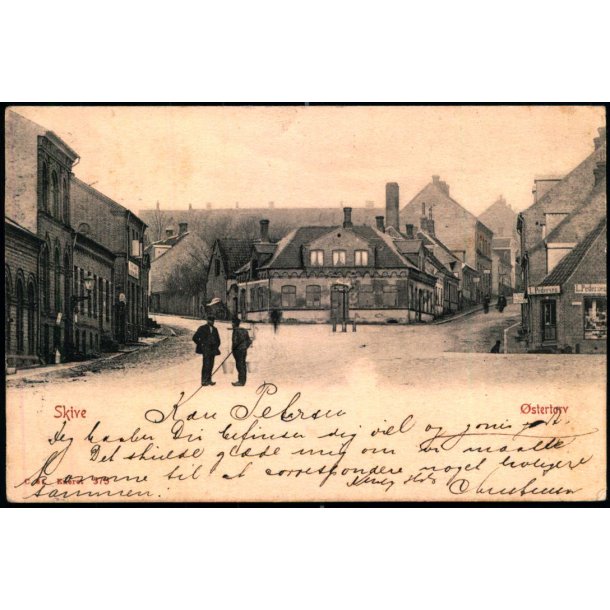 L. Pedersen
L. Pedersen
Skive
Østertorv
Kære Petersen
Jeg haaber De befinder dig vel og
Det skulde glæde mig om vi maatte
Komme til at correspondere noget livligere
sammen.
Christensen
375